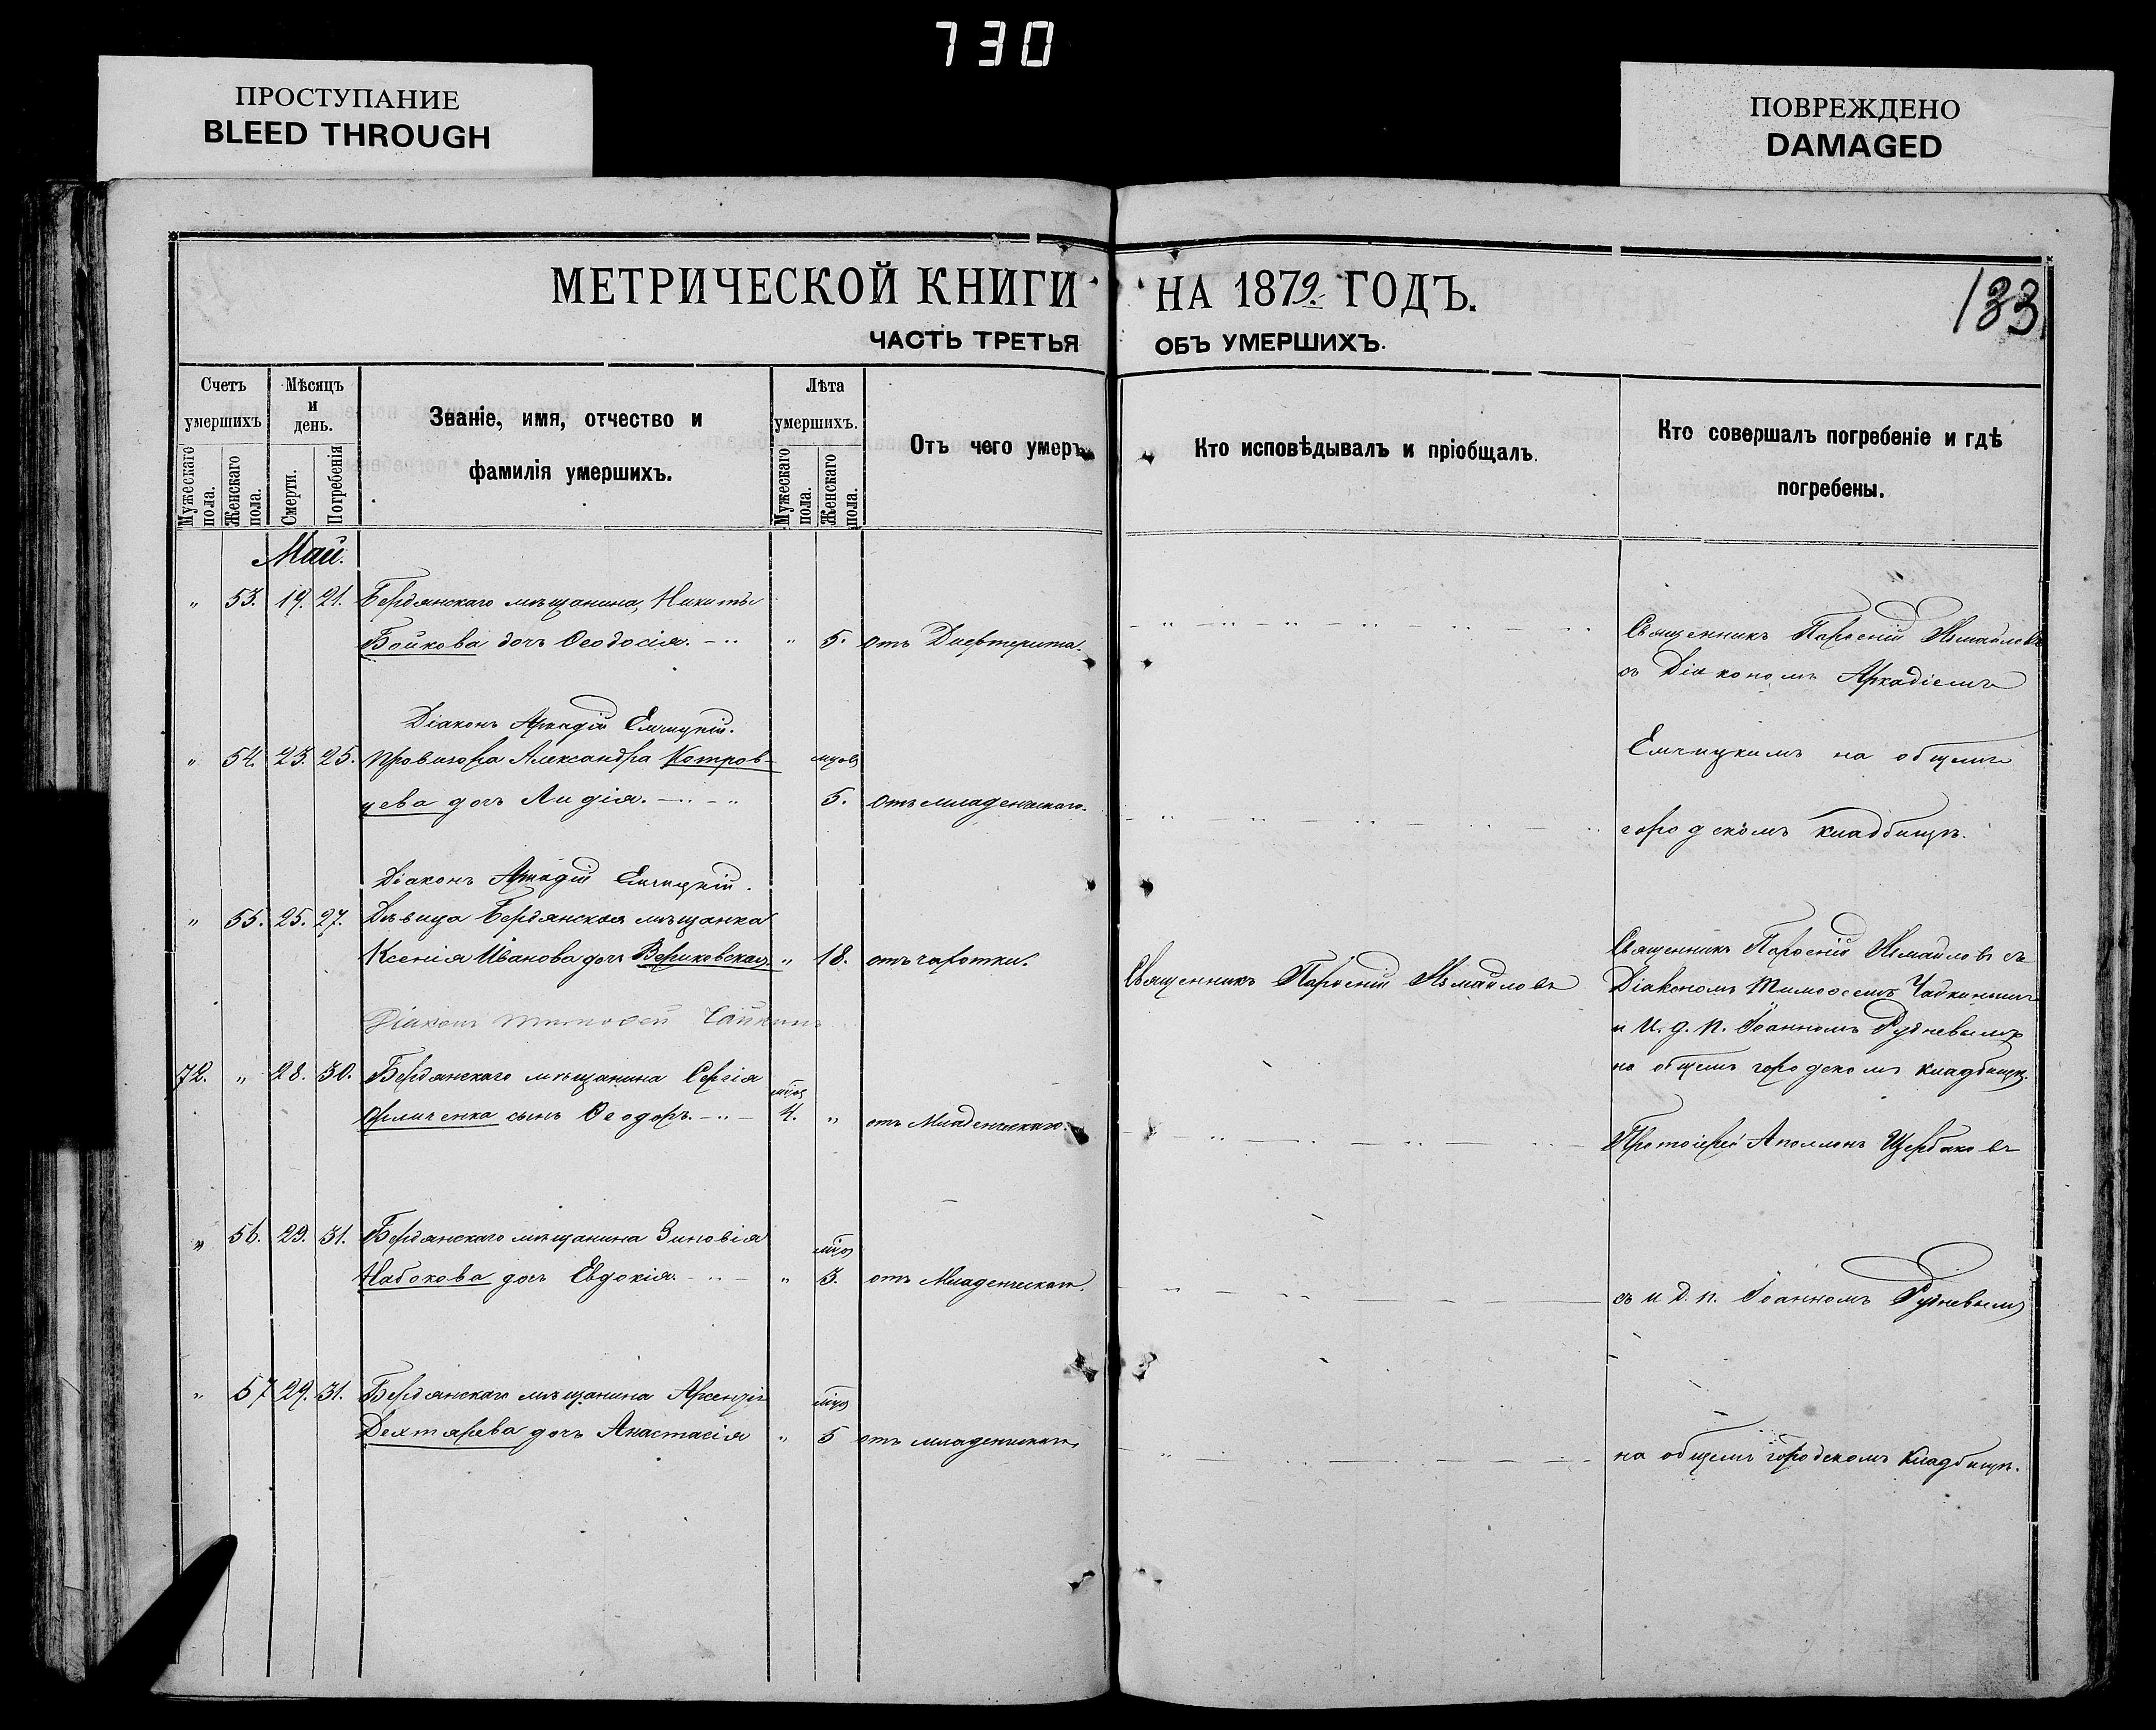 730
ПРОСТУПАНИЕ
BLEED THROUGH
ПОВРЕЖДЕНО
DAMAGED
МЕТРИЧЕСКОЙ КНИГИ НА 1879 ГОДЪ.
133
ЧАСТЬ ТРЕТЬЯ ОБЪ УМЕРШИХЪ.
Счетъ умершихъ
Мужескаго пола.
Женскаго пола.
Мѣсяцъ и день.
Смерти.
Погребенія
Званіе, имя, отчество и
фамилія умершихъ.
Лѣта умершихъ.
Мужескаго пола.
Женскаго пола.
Отъ чего умеръ
Кто исповѣдывалъ и пріобщалъ.
Кто совершалъ погребеніе и гдѣ
погребены.
Май.
" 53. 19. 21. Бердянскаго мѣщанина, Никиты
Бойкова дочь Ѳеодосія. " 5. отъ Дифтерита.
Священникъ Измайловъ
съ Діакономъ Аркадіемъ
Діаконъ Аркадій Емчицкій.
Емчицкимъ на общемъ
" 54. 23. 25. Провизора Александра Котров-
цева дочь Лидія. 5. отъ младенческаго.
городскомъ кладбищѣ.
Діаконъ Аркадій Емчицкій.
" 55. 25. 27. Дѣвица Бердянская мѣщанка
Ксенія Иванова дочь Вериковская. " 18. отъ чахотки.
Священникъ Измайловъ
Священникъ Измайловъ съ
Діакономъ Тимоѳеемъ Чайкинымъ
и И. д. п. Іоанномъ Рудневымъ
на общемъ городскомъ кладбищѣ.
Діаконъ Тимоѳей Чайкинъ
72. " 28. 30. Бердянскаго мѣщанина Сергія
сынъ Ѳеодоръ. 4. " отъ Младенческаго.
Протоіерей Аполлонъ Щербаковъ
" 56. 29. 31. Бердянскаго мѣщанина Зиновія
Набокова дочь Евдокія. " 3. отъ Младенческаго.
съ И. д. п. Іоанномъ Рудневымъ
" 57 29. 31. Бердянскаго мѣщанина Арсенія
Дехтярева дочь Анастасія " 5 отъ младенческаго
на общемъ городскомъ кладбищѣ.